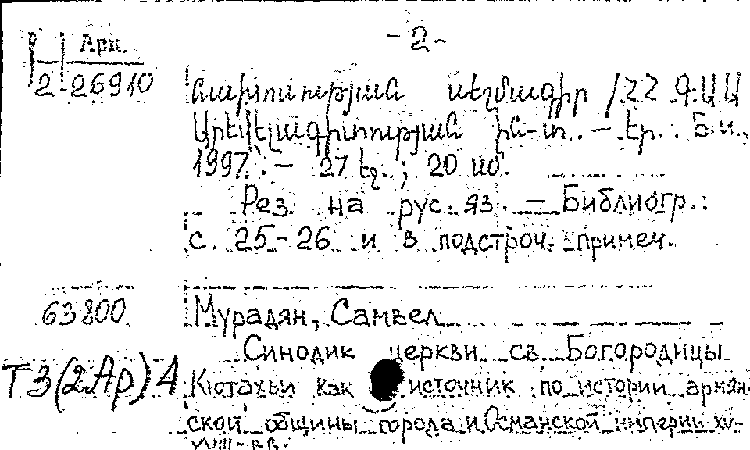 -2-
Арм.
2-26910
նախտության սեղմագիր / ՀՀ ԳԱԱ
Արևելագիտության ին-տ. – Եր. : Б.и.,
1997. – 27 էջ. ; 20 սմ.
Рез. на рус. яз. – Библиогр.:
с. 25-26 и в подстроч. примеч.
63800 Мурадян, Самвел
Синодик церкви св. Богородицы
Т3(2Ар)4 Кютахьи как источник по истории армян-
ской общины города и Османской империи XV-
XVIII вв.